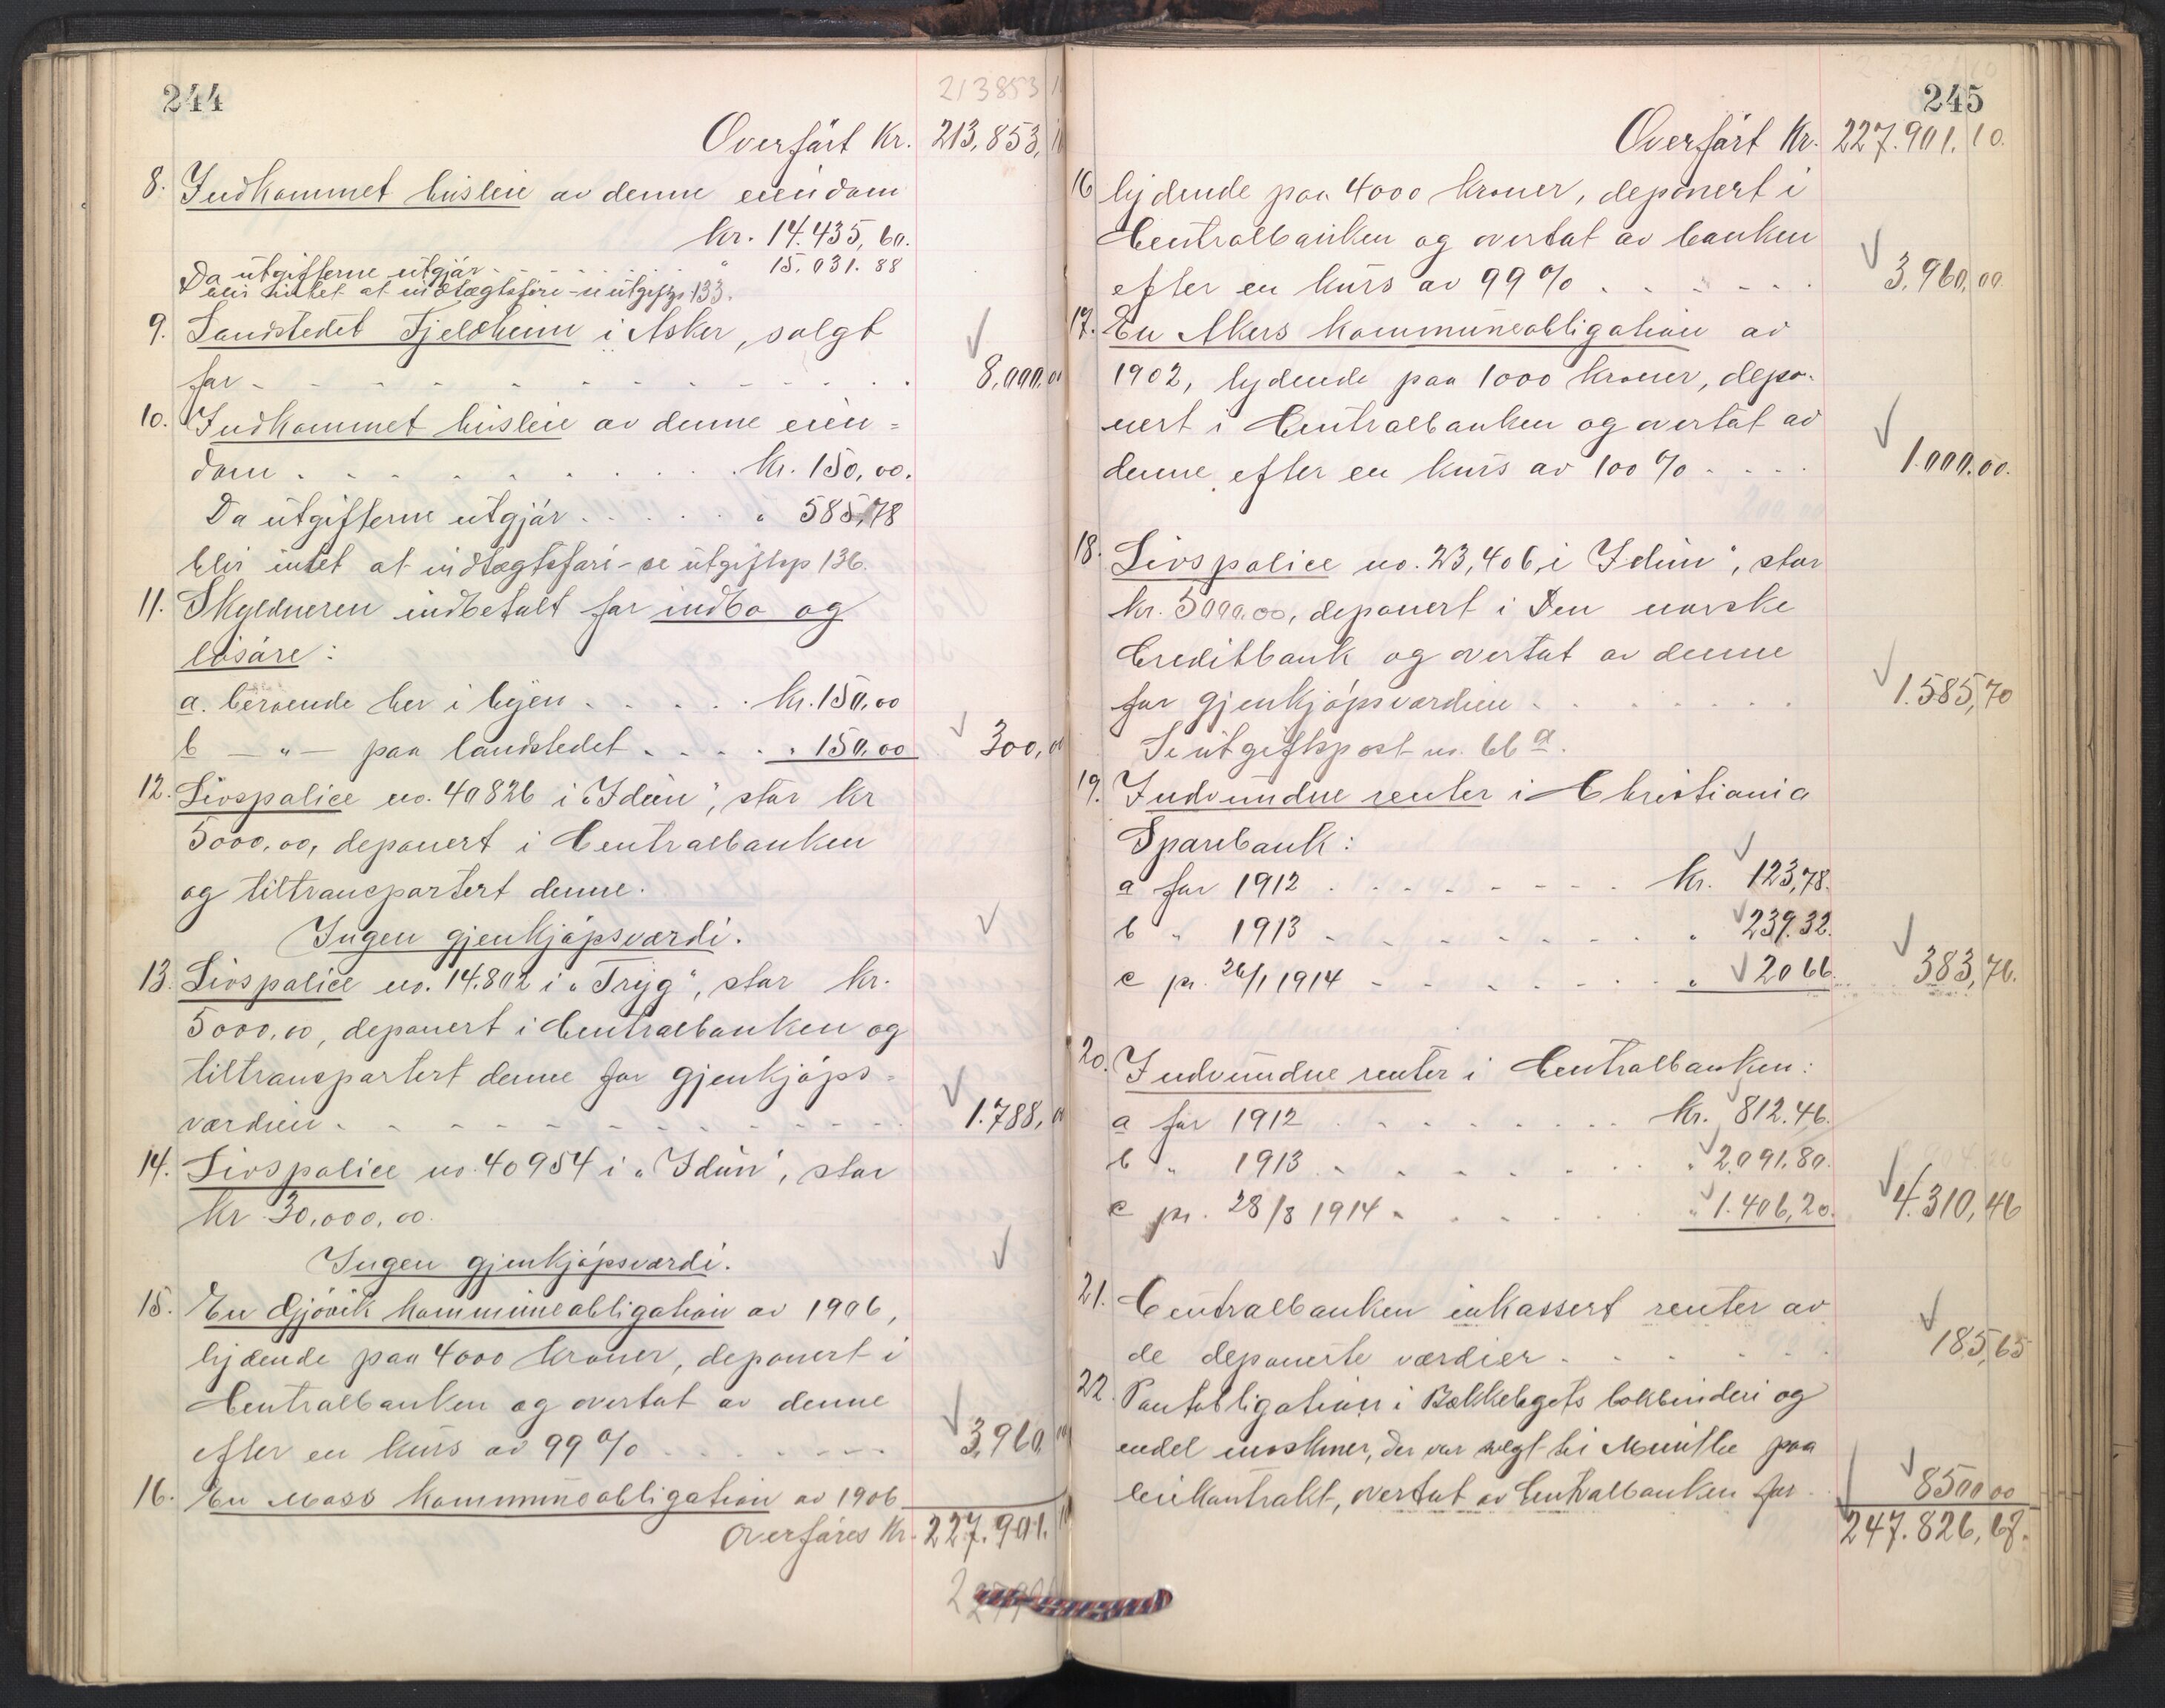 244
213853
Overført Kr. 213,853,10
8. Indkommet husleie av denne eiendom
kr. 14.435,60.
Da utgifterne utgjør . . . . " 15.031.88
blir intet at indtægtsføre - se utgiftsp. 133.
9. Landstedet Fjeldheim i Asker, solgt
for - - - - 8,000,00
10. Indkommet husleie av denne eien=
dom . . . . kr. 150,00.
Da utgifterne utgjør . . . . " 585,78
blir intet at indtægtsføre - se utgiftsp 136.
11. Skyldneren indbetalt for indbo og
løsøre:
a. beroende her i byen . . . . kr. 150,00
b — " — paa landstedet . . . . " 150,00 300,00
12. Livspolice no. 40826 i "Idun", stor kr
5000,00, deponert i Centralbanken
og tiltransportert denne.
Ingen gjenkjøpsværdi.
13. Livspolice no. 14.802 i "Tryg", stor kr.
5000,00, deponert i Centralbanken og
tiltransportert denne for gjenkjøps=
værdien - - - - 1.788,00
14. Livspolice no 40954 i "Idun", stor
kr 30,000,00.
Ingen gjenkjøpsværdi.
15. En Gjøvik kommuneobligation av 1906,
lydende paa 4000 kroner, deponert i
Centralbanken og overtat av denne
efter en kurs av 99 % . . . . 3,960,00
16. En Moss kommuneobligation av 1906
Overføres Kr. 227.901.10
245
Overført Kr. 227.901.10.
16 lydende paa 4000 kroner, deponert i
Centralbanken og overtat av banken
efter en kurs av 99 % . . . . 3,960,00.
17. En Akers kommuneobligation av
1902, lydende paa 1000 kroner, depo-
nert i Centralbanken og overtat av
denne efter en kurs av 100 % . . . . 1.000.00.
18. Livspolice no. 23,406, i Idun", stor
kr. 5000.00, deponert i Den norske
Creditbank og overtat av denne
for gjenkjøpsværdien . . . . 1.585,70
Se utgiftspost no. 66 a.
19. Indvundne renter i Christiania
Sparebank:
a for 1912 . . . . kr. 123,78.
b " 1913 . . . . " 239.32.
c pr. 26/1 1914 . . . . " 20 66. 383,76.
20. Indvundne renter i Centralbanken:
a for 1912 . . . . kr. 812.46.
b " 1913 . . . . " 2.091.80.
c pr. 28/8 1914 . . . . " 1.406,20. 4.310,46
21. Centralbanken inkassert renter av
de deponerte værdier . . . . 185,65
22. Pantobligation i Bækkelagets bokbinderi og
endel maskiner, der var solgt til Munthe paa
leiekontrakt, overtat av Centralbanken for . 8500 00
247.826,67.